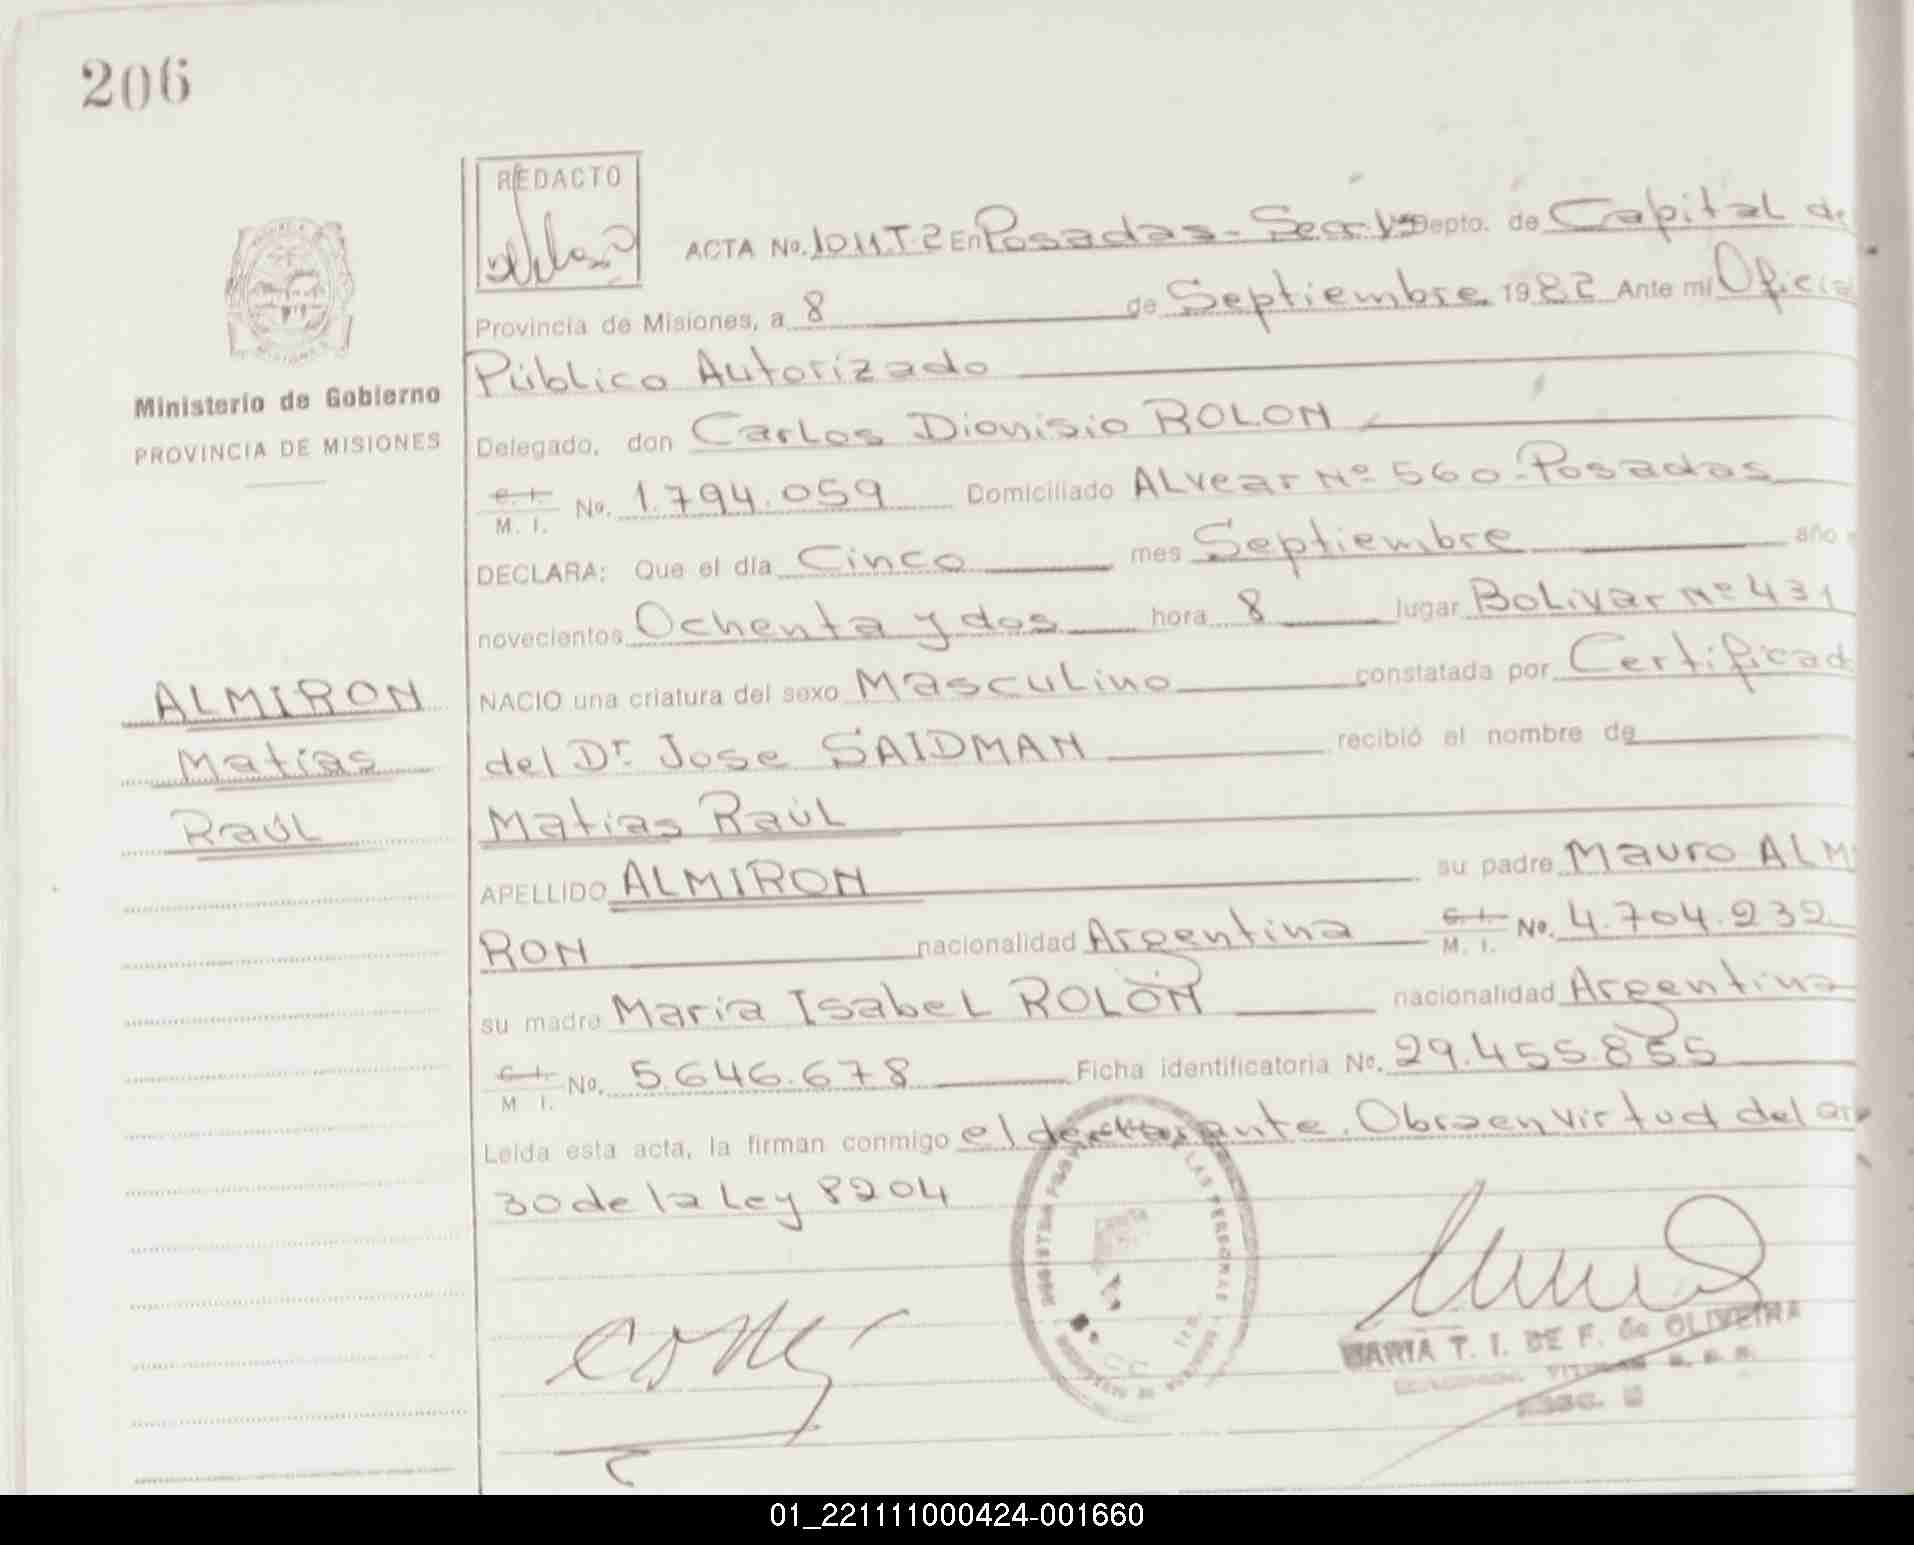 206
REDACTO
ACTA No. 1011.T.2 En Posadas - Depto. de Capital de
Provincia de Misiones, a 8 de Septiembre 1982 Ante mi Oficial
Público Autorizado
Ministerio de Gobierno
PROVINCIA DE MISIONES
Delegado, don Carlos Dionisio ROLON
C. I. / M. I. No. 1.794.059 Domiciliado ALvear Nº 560 - Posadas
DECLARA: Que el día Cinco mes Septiembre año
novecientos Ochenta y dos hora 8 lugar BoLivar Nº 431
NACIO una criatura del sexo MascuLino constatada por Certificad
del Dr. Jose SAIDMAN recibió el nombre de
Matías Raúl
APELLIDO ALMIRON su padre Mauro ALMI
RON nacionalidad Argentina C. I. / M. I. No. 4.704.232
su madre María IsabeL ROLÓN nacionalidad Argentina
C. I. / M. I. No. 5.646.678 Ficha identificatoria No. 29.455.855
Leída esta acta, la firman conmigo el declarante. Obra en virtud del art
30 de la Ley 8204
ALMIRON
Matías
Raúl
LAS PERSONAS
MARIA T. I. DE F. de OLIVEIRA
01_221111000424-001660